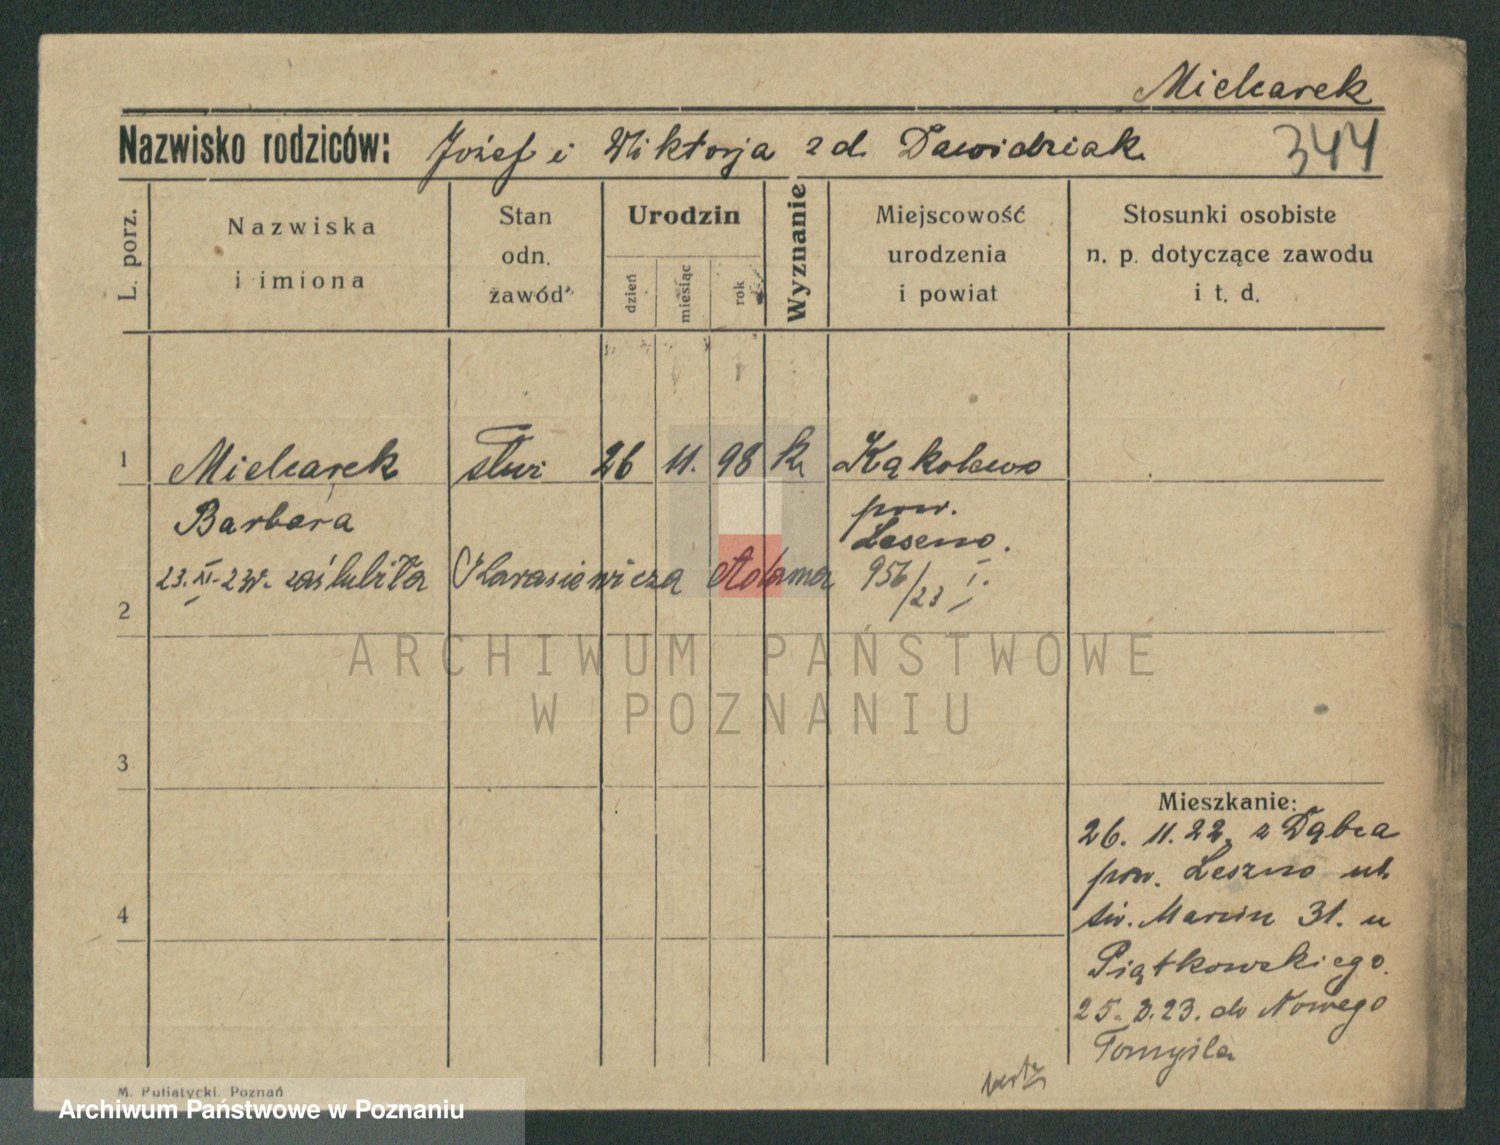 Mielcarek
Nazwisko rodziców: Józef i Wiktorja z d. Dawidziak
344
L. porz.
Nazwiska
i imiona
Stan
odn.
zawód
Urodzin
dzień
miesiąc
rok
Wyznanie
Miejscowość
urodzenia
i powiat
Stosunki osobiste
n. p. dotyczące zawodu
i t. d.
1
Mielcarek 26 11. 98 k Kąkolewo
Barbara pow.
Leszno.
23. XI. 23r. zaślubiła Karasiewicza Adama 956/23 I.
2
ARCHIWUM PAŃSTWOWE
W POZNANIU
3
Mieszkanie:
26. 11. 22. z Dąbca
pow. Leszno ul.
św. Marcin 31. u
4
Piątkowskiego.
25. 3. 23. do Nowego
Tomyśla
M. Putiatycki, Poznań
Archiwum Państwowe w Poznaniu